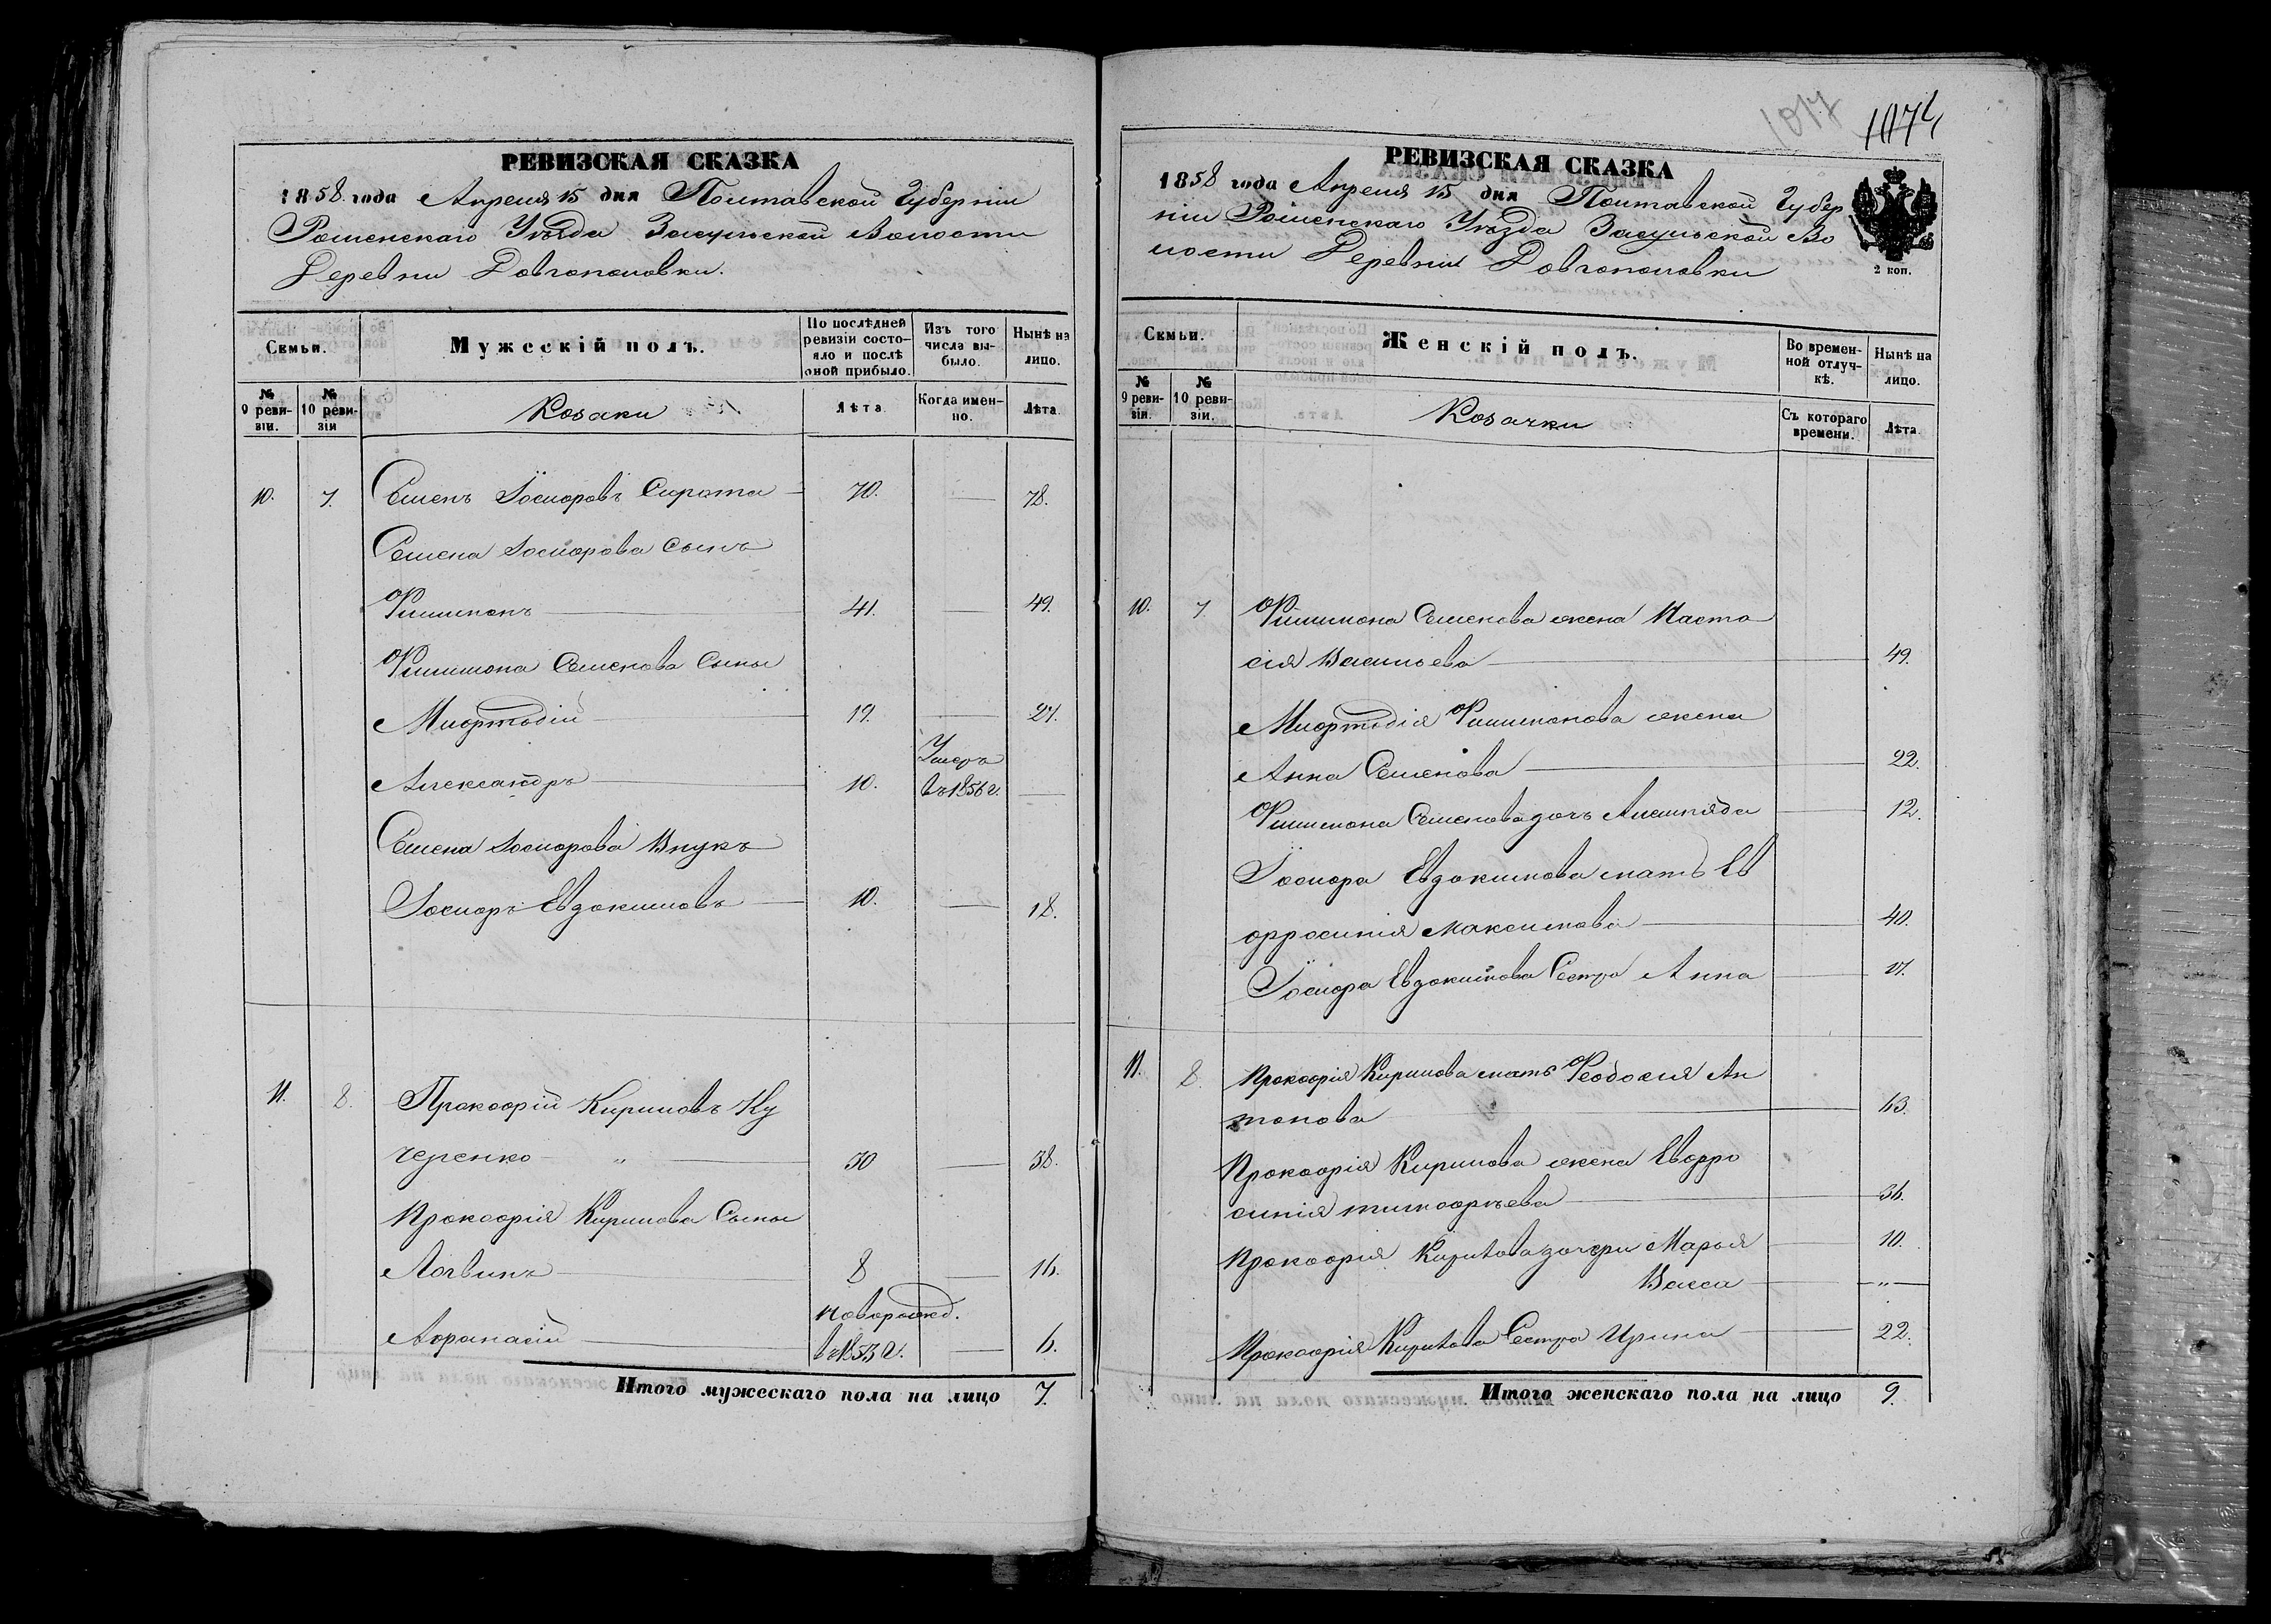 РЕВИЗСКАЯ СКАЗКА
1858 года Апреля 15 дня Полтавской Губерніи
Роменскаго Уѣзда Засульской Волости
Деревни Довгополовки.
Семьи.
Мужескій полъ.
По послѣдней ревизіи состояло и послѣ оной прибыло.
Изъ того числа выбыло.
Нынѣ на лицо.
№ 9 ревизіи.
№ 10 ревизіи
Козаки
Лѣта
Когда именно.
Лѣта.
10. 7. Семенъ Іосифовъ Сирота 70. — 78.
Семена Іосифова Сынъ
Филимонъ 41. — 49.
Филимона Семенова Сыны
Мифтодій 19. — 27.
Умеръ
Александръ 10. въ 1856 г. —
Семена Іосифова Внукъ
Іосифъ Евдокимовъ 10. — 18.
11. 8. Прокофій Кириловъ Ку
черенко „ 30 — 38.
Прокофія Кирилова Сыны
Логвинъ 8 — 16.
новорожд.
Афанасій в 1853 г. — 6.
Итого мужескаго пола на лицо 7.
1017
1074
РЕВИЗСКАЯ СКАЗКА
1858 года Апреля 15 дня Полтавской Губер
ніи Роменскаго Уѣзда Засульской Во
лости Деревни Довгополовки
2 коп.
Семьи.
Женскій полъ.
Во временной отлучкѣ.
Нынѣ на лицо.
№ 9 ревизіи.
№ 10 ревизіи.
Козачки
Съ котораго времени.
Лѣта.
10. 7. Филимона Семенова жена Наста
сія Васильева 49.
Мифтодія Филимонова жена
Анна Семенова 22.
Филимона Семенова дочь 12.
Іосифа Евдокимова мать Ев
фросинія Максимова 40.
Іосифа Евдокимова Сестра Анна 17.
11. 8. Прокофія Кирилова мать Феодосія Ан
тонова 63.
Прокофія Кирилова жена Евфро
синія тимофѣева 36.
Прокофія Кирилова дочери Марья 10.
Васса „
Прокофія Кирилова Сестра Ирина 22.
Итого женскаго пола на лицо 9.